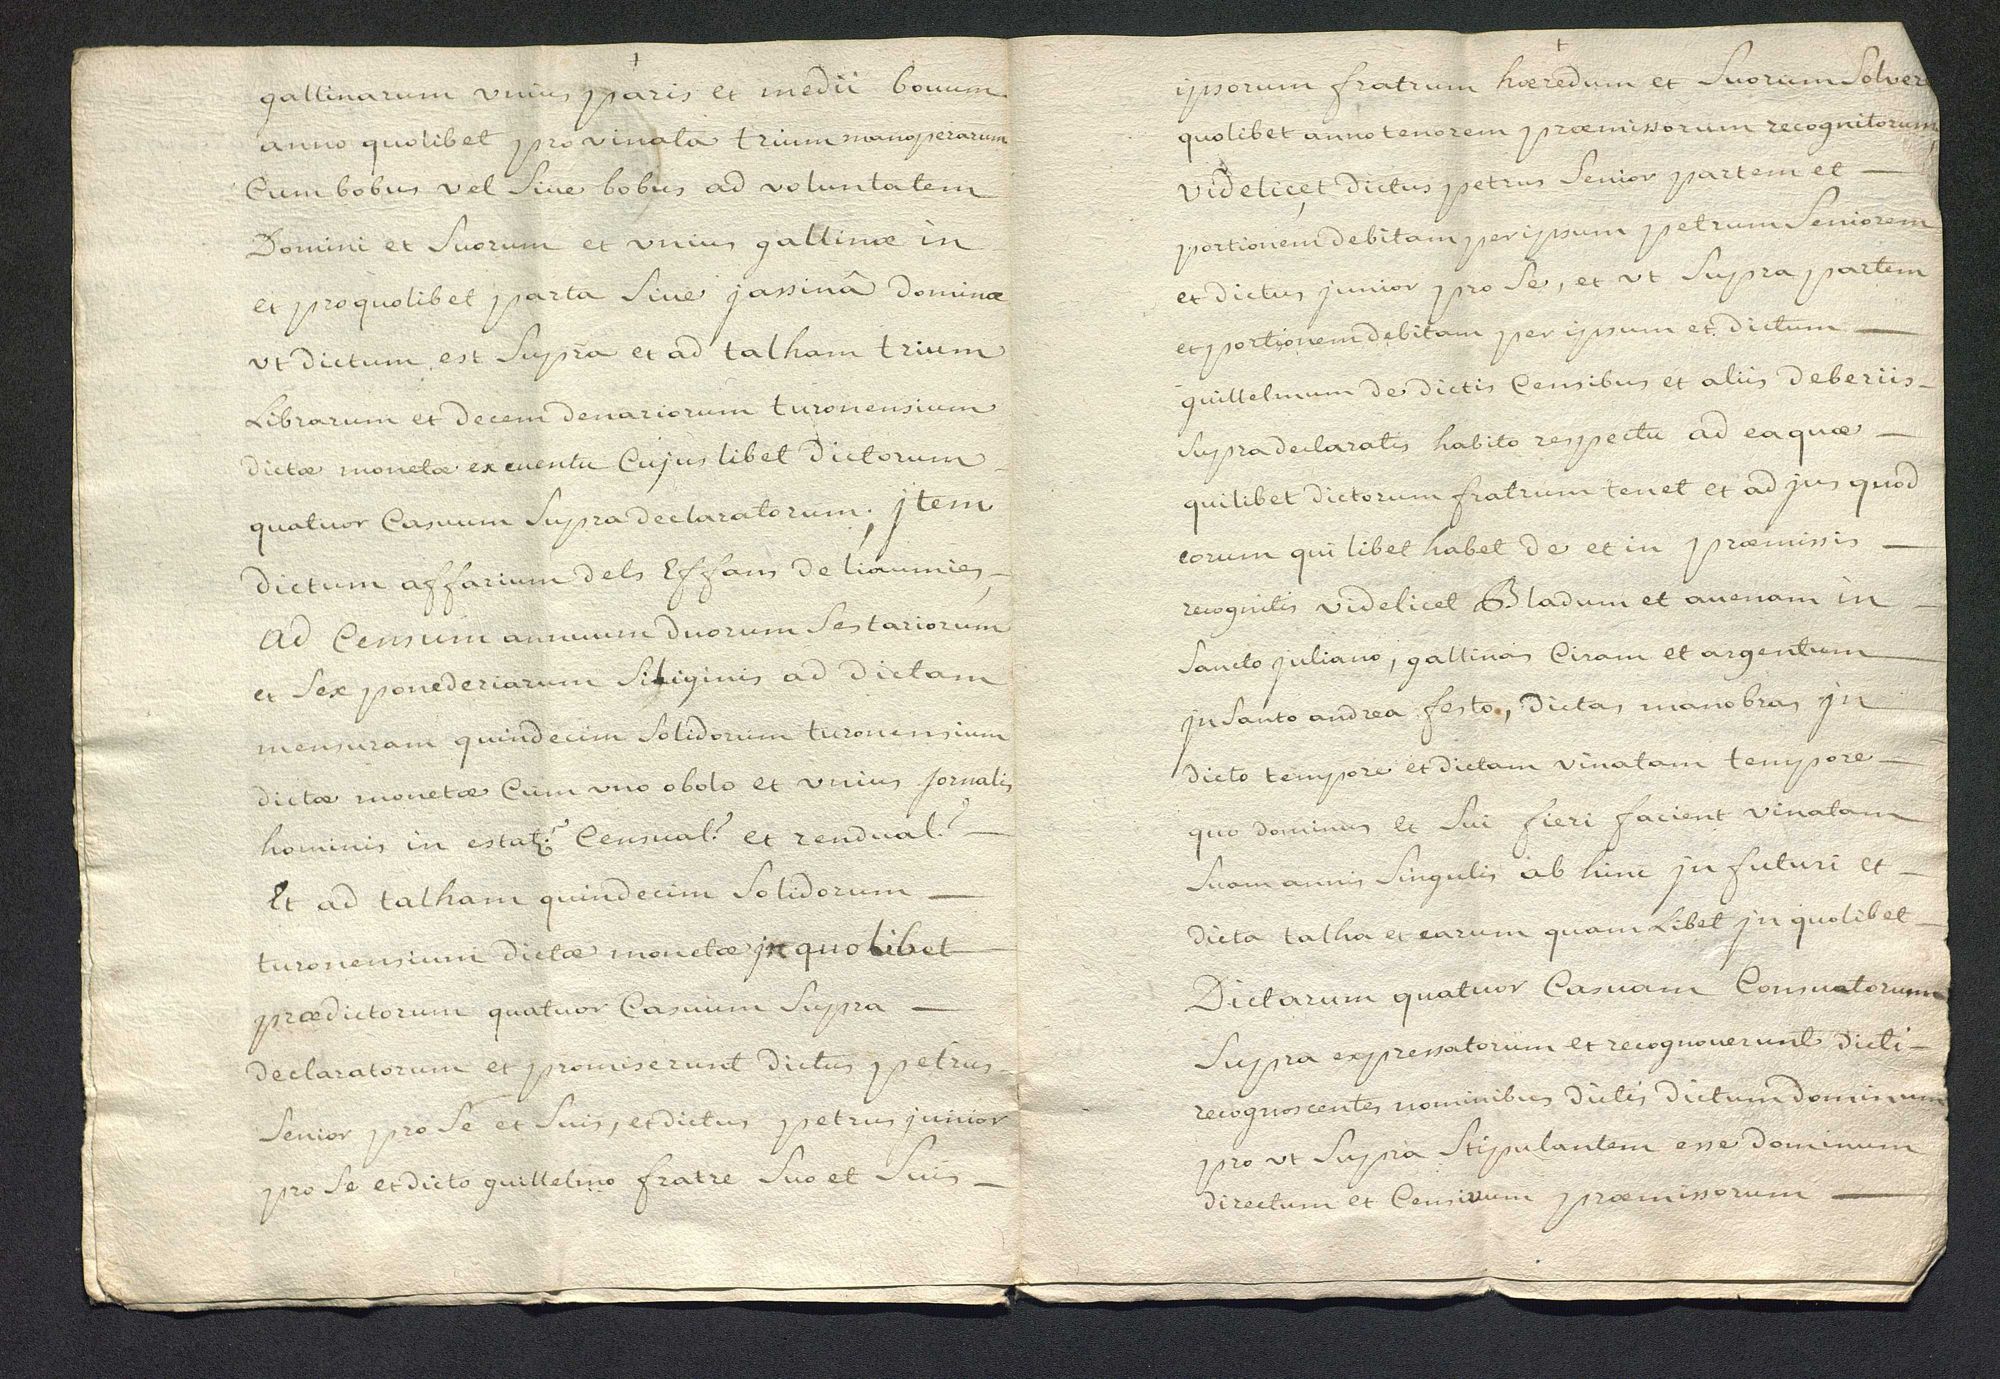 gallinarum vnius paris et medii bouum
anno quolibet pro vinata trium manoperarum
Cum bobus vel Sine bobus ad voluntatem
Domini et Suorum et vnius gallinæ in
et pro quolibet parta Siue jassinâ dominæ
vt dictum est Supra et ad talham trium
Librarum et decem denariorum turonensium
dictæ monetæ ex euentu Cujus libet dictorum
quatuor Casuum Supra declaratorum; jtem
dictum affarium dels Effans de liaumies,
ad Censum annuum duorum Sestariorum
et Sex ponederiarum Siliginis ad dictam
mensuram quindecim Solidorum turonensium
dictæ monetæ Cum vno obolo et vnius jornalis
hominis in estat: Censual: et rendual:
Et ad talham quindecim Solidorum —
turonensium dictæ monetæ in quolibet
prædictorum quatuor Casuum Supra —
declaratorum et promiserunt dictus petrus
Senior pro Se et Suis, et dictus petrus junior
pro Se et dicto guillelmo fratre Suo et Suis —
ipsorum fratrum hæredum et Suorum Solvere
quolibet anno tenorem præmissorum recognitorum,
videlicet dictus petrus Senior partem et —
portionem debitam per ipsum petrum Seniorem
et dictus junior pro Se, et vt Supra partem
et portionem debitam per ipsum et dictum —
guillelmum de dictis Censibus et aliis deberiis —
Supra declaratis habito respectu ad ea quæ —
quilibet dictorum fratrum tenet et ad jus quod
eorum qui libet habet de et in præmissis —
recognitis videlicet Bladum et auenam in —
Sancto juliano, gallinas Ciram et argentum
jn Santo andrea festo, dictas manobras jn
dicto tempore et dictam vinatam tempore —
quo dominus et Sui fieri facient vinatam
Suam annis Singulis ab hinc jn futuri et —
dicta talha et earum quam Libet jn quolibet —
Dictarum quatuor Casuam Consuatorum
Supra expressatorum et recognouerunt dicti —
recognoscentes nominibus dictis dictum dominum
pro vt Supra Stipulantem esse dominum
directum et Censivum præmissorum —